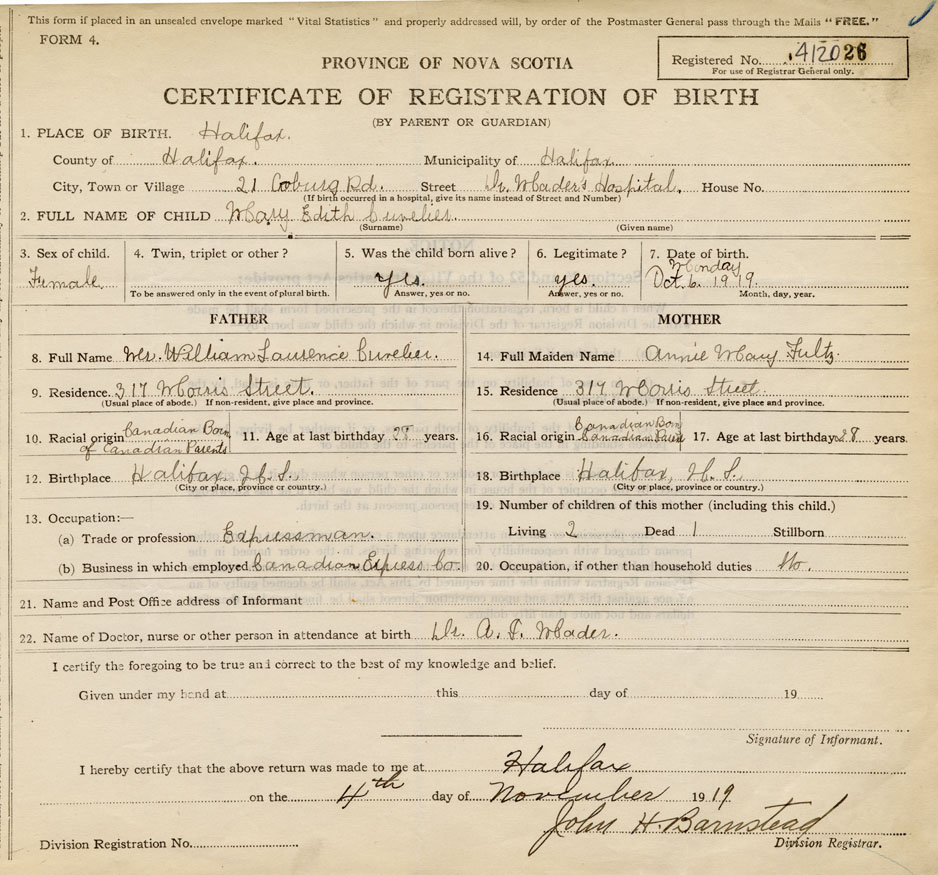 This form if placed in an unsealed envelope marked "Vital Statistics" and properly addressed will, by order of the Postmaster General pass through the Mails "FREE."
FORM 4.
Registered No. 412026
For use of Registrar General only.
PROVINCE OF NOVA SCOTIA
CERTIFICATE OF REGISTRATION OF BIRTH
(BY PARENT OR GUARDIAN)
1. PLACE OF BIRTH. Halifax.
County of Halifax. Municipality of Halifax.
City, Town or Village 21 Coburg Rd. Street Dr. Mader's Hospital. House No.
(If birth occurred in a hospital, give its name instead of Street and Number)
2. FULL NAME OF CHILD Mary Edith Cuvelier.
(Surname) (Given name)
3. Sex of child. 4. Twin, triplet or other? 5. Was the child born alive? 6. Legitimate? 7. Date of birth.
Female. Yes. yes. Monday Oct. 6. 1919.
To be answered only in the event of plural birth. Answer, yes or no. Answer, yes or no. Month, day, year.
FATHER
8. Full Name Mr. William Laurence Cuvelier.
9. Residence. 317 Morris Street.
(Usual place of abode.) If non-resident, give place and province.
10. Racial origin Canadian Born of Canadian Parents 11. Age at last birthday 28 years.
12. Birthplace Halifax, N.S.,
(City or place, province or country.)
13. Occupation:—
(a) Trade or profession Expressman.
(b) Business in which employed Canadian Express Co.
MOTHER
14. Full Maiden Name Annie Mary Fultz.
15. Residence 317 Morris Street.
(Usual place of abode.) If non-resident, give place and province.
16. Racial origin Canadian Born Canadian 17. Age at last birthday 28 years.
18. Birthplace Halifax, N.S.,
(City or place, province or country.)
19. Number of children of this mother (including this child.)
Living 2 Dead 1 Stillborn
20. Occupation, if other than household duties No.
21. Name and Post Office address of Informant
22. Name of Doctor, nurse or other person in attendance at birth Dr. A. I. Mader.
I certify the foregoing to be true and correct to the best of my knowledge and belief.
Given under my hand at this day of 19
Signature of Informant.
I hereby certify that the above return was made to me at Halifax
on the 4th day of November 1919.
John H. Barnstead
Division Registration No. Division Registrar.